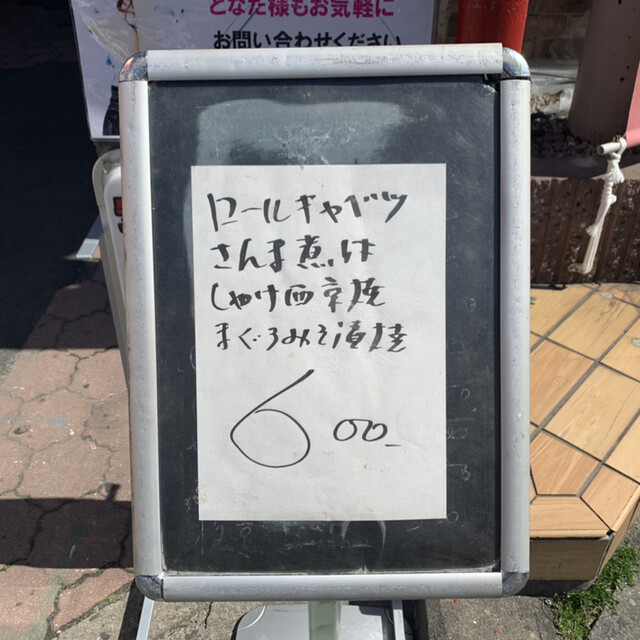 どなた様もお気軽に
お問い合わせください
ロールキャベツ
さんま煮は
しゃけ西京焼
まぐろみそ漬焼
600_